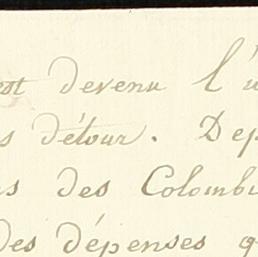 est devenu l'u
s détour. Dep
s des Colombi
des dépenses q